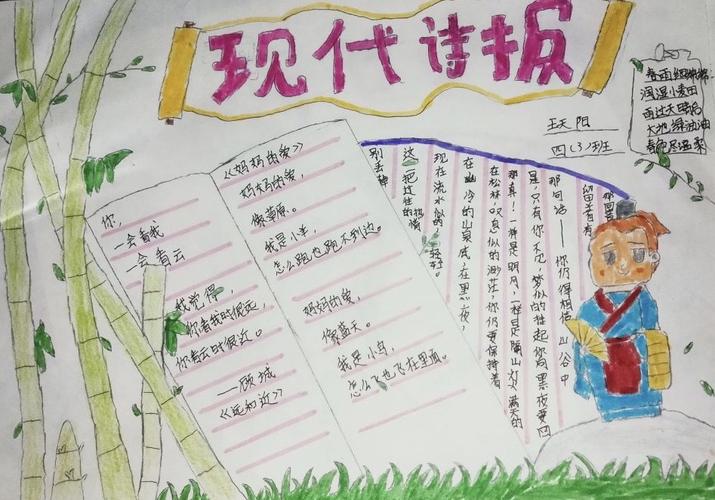 现代诗报
春雨细绵绵,
润湿小麦田
雨过天晴后
大地绿油油
天阳
四(3)班
你,
一会看我
一会看云
我觉得,
你看我时很远,
你看云时很近。
——顾城
《远和近》
《妈妈的爱》
妈妈的爱,
像草原。
我是小羊,
怎么跑也跑不到边。
妈妈的爱,
像蓝天。
我是小鸟,
怎么飞也飞在里面。
别丢掉
这一把过往的热情
现在流水似的,轻轻
在幽冷的山泉底,在黑夜,
在松林,叹息似的渺茫,你仍要保持着
那真!一样是明月,一样是隔山灯火满天的
是,只有你不见,梦似的挂起你向黑夜要回
那句话——你仍得相信山谷中
留着有